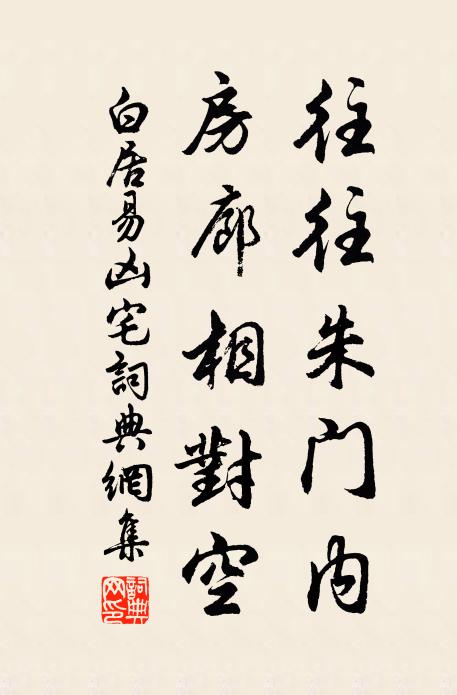 往往朱门内
房廊相對空
白居易凶宅詞典網集
詞典网印